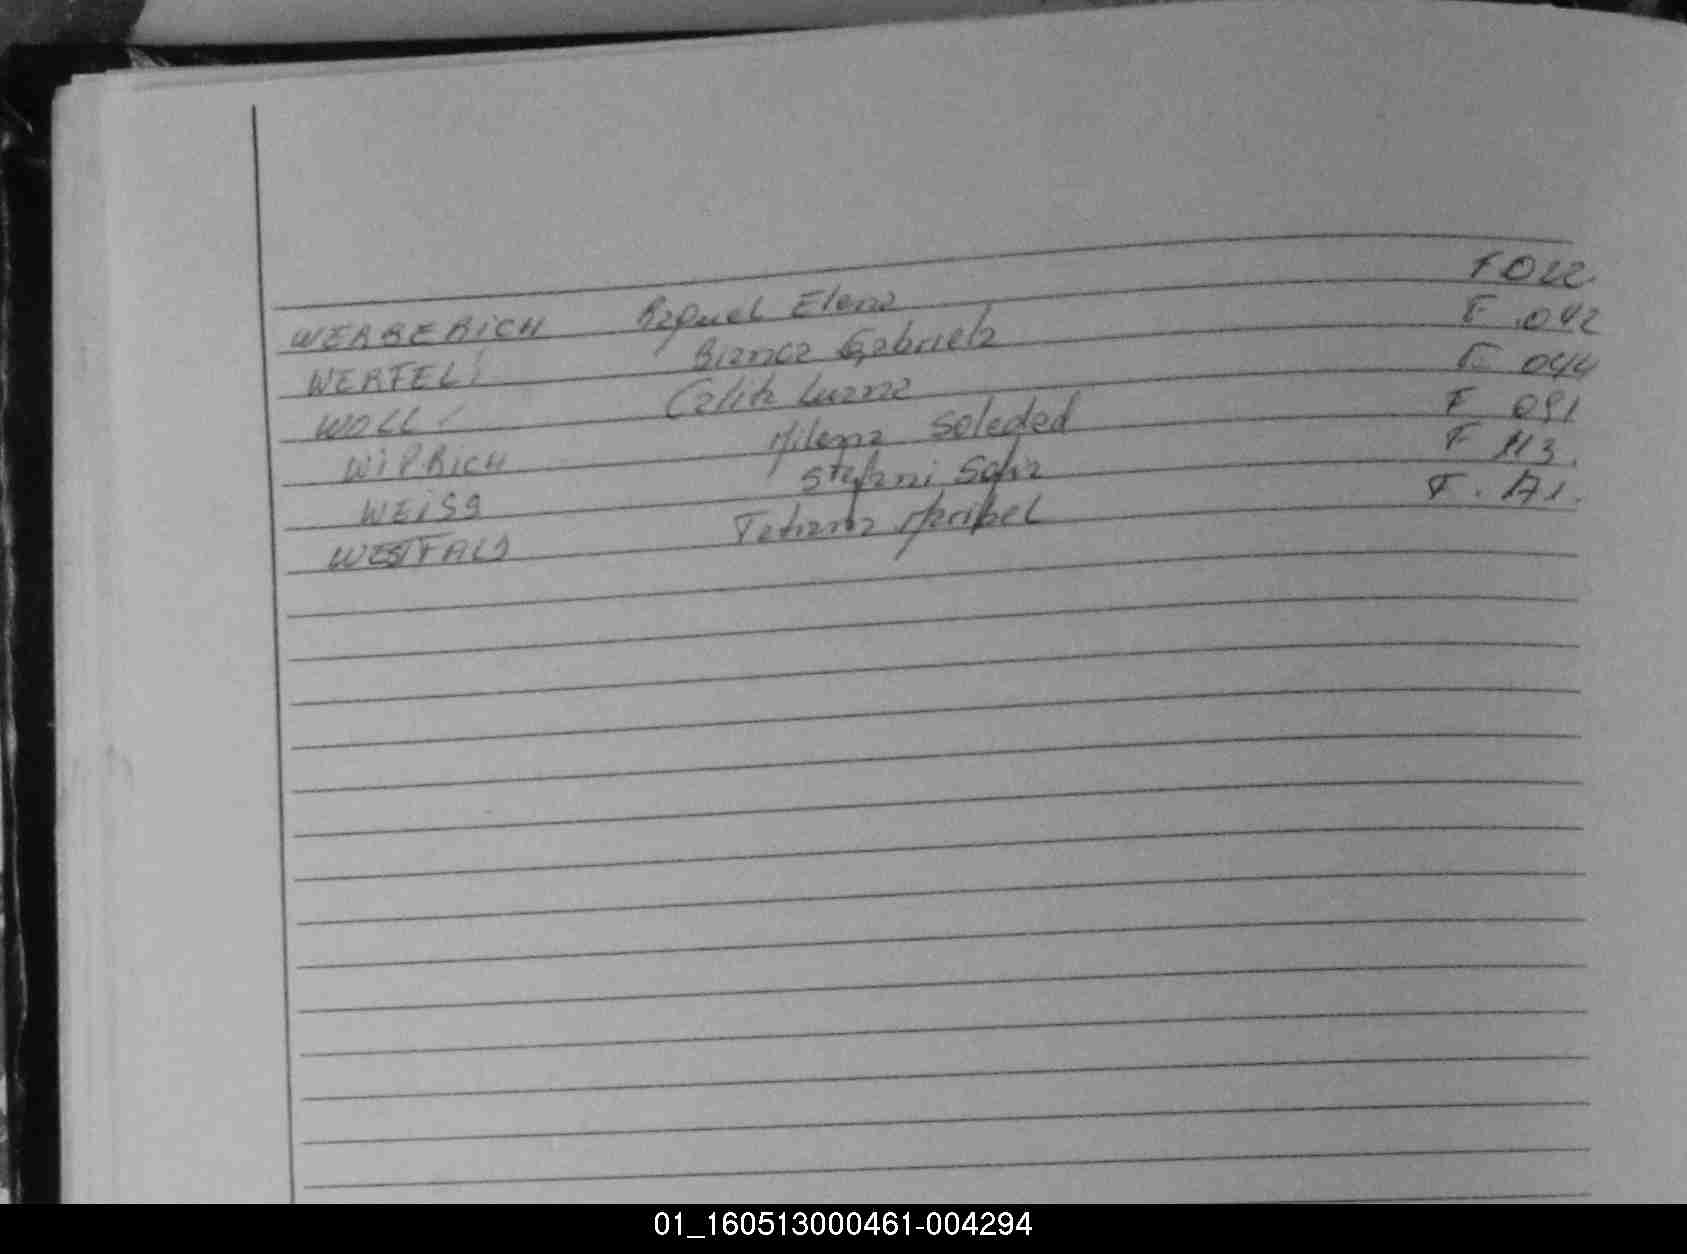 WERBERICH Raquel Elena F 022
WERFEL Bianca Gabriela F. 042
WOLL Luana F. 044
WIPRICH Milena Soledad F 091
WEISS Stefani Sofia F 113.
WESTFALD Tatiana Maribel F.
01_160513000461-004294